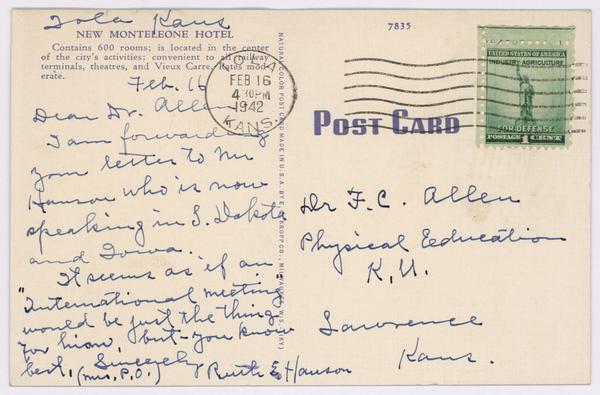 Iola Kans
NEW MONTELEONE HOTEL
Contains 600 rooms; is located in the center
of the city's activities; convenient to all railway
terminals, theatres, and Vieux Carre. Rates mod-
erate.
Feb. 16
Dear Dr. Allen
I am forwarding
your letter to Mr
Hanson who is now
speaking in S. Dakota
and Iowa.
It seems as if an
"International meeting"
would be just the thing
for him, but - you know
best,
Sincerely
(Mrs. P.O.) Ruth E. Hanson
IOLA
FEB 16
4 30PM
1942
KANS.
NATURAL COLOR POST CARD MADE IN U.S.A. BY E. C. KROPP CO., MILWAUKEE, WIS.
7835
POST CARD
UNITED STATES OF AMERICA
INDUSTRY-AGRICULTURE
FOR DEFENSE
POSTAGE 1 CENT
Dr F.C. Allen
Physical Eeducation
K.U.
Lawrence
Kans.